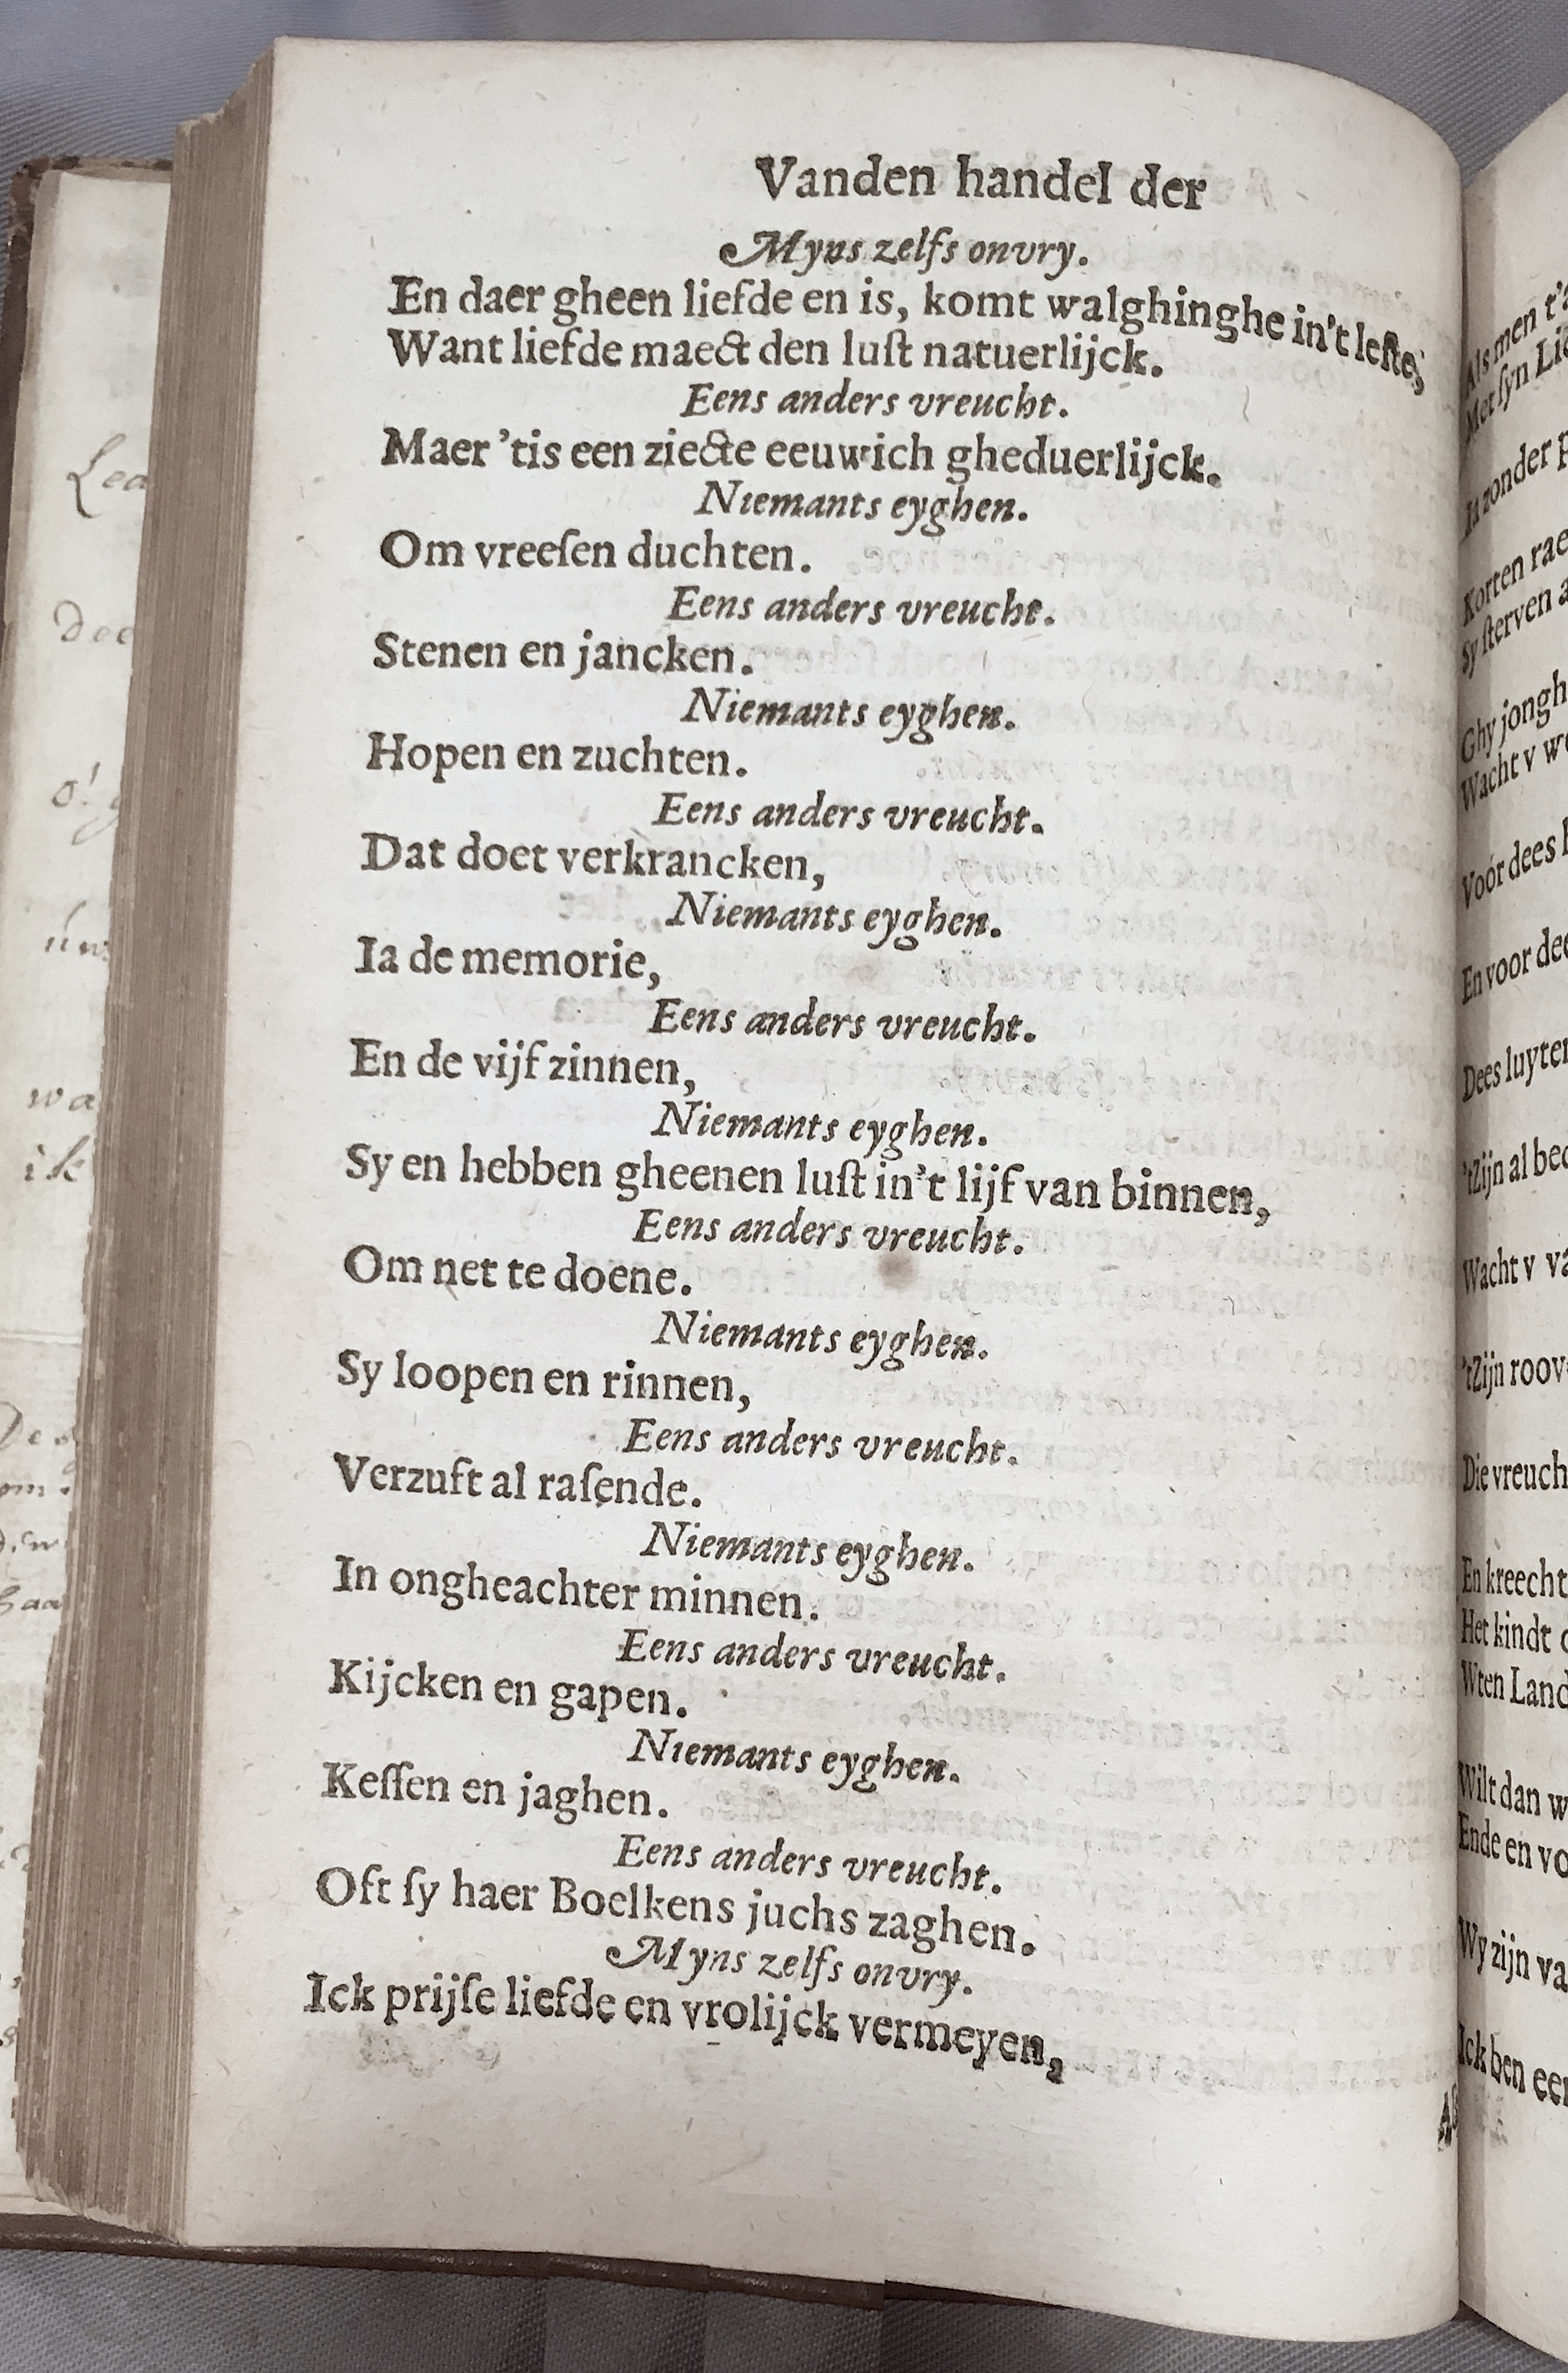 Vanden handel der
Myns zelfs onvry.
En daer gheen liefde en is, komt walghinghe in't leſte,
Want liefde maect den luſt natuerlijck.
Eens anders vreucht.
Maer 'tis een ziecte eeuwich gheduerlijck.
Niemants eyghen.
Om vreeſen duchten.
Eens anders vreucht.
Stenen en jancken.
Niemants eyghen.
Hopen en zuchten.
Eens anders vreucht.
Dat doet verkrancken,
Niemants eyghen.
Ia de memorie,
Eens anders vreucht.
En de vijf zinnen,
Niemants eyghen.
Sy en hebben gheenen luſt in't lijf van binnen,
Eens anders vreucht.
Om net te doene.
Niemants eyghen.
Sy loopen en rinnen,
Eens anders vreucht.
Verzuft al raſende.
Niemants eyghen.
In ongheachter minnen.
Eens anders vreucht.
Kijcken en gapen.
Niemants eyghen.
Keſſen en jaghen.
Eens anders vreucht.
Oft ſy haer Boelkens juchs zaghen.
Myns zelfs onvry.
Ick prijſe liefde en vrolijck vermeyen,
Als men
Met ſyn
Ia zonder
Korten
Sy ſterven
Ghy
Wacht v
Voor dees
En voor
Dees
'tZijn al
Wacht v
'tZijn
Die
En kreecht
Het kindt
Wten
Wilt dan
Ende en
Wy zijn
Ick ben